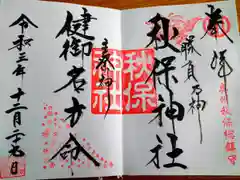 奉拝
勝負の神
秋保神社
秋保
神社
主祭神
健御名方命
令和三年十二月二十九日